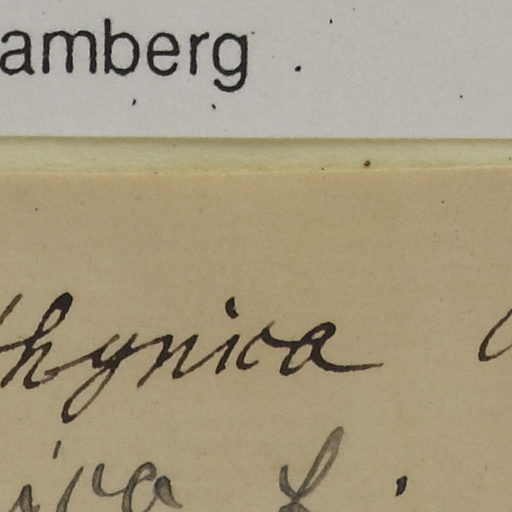 amberg
thynica
ica L.